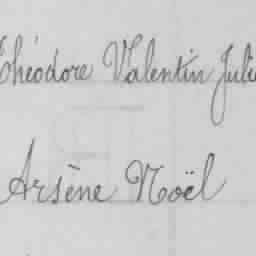 Théodore Valentin Juli
Arsène Noël